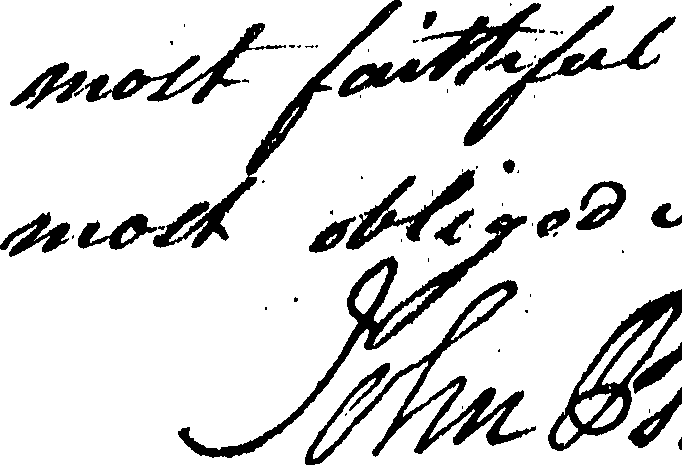 most faithful
most obliged
John